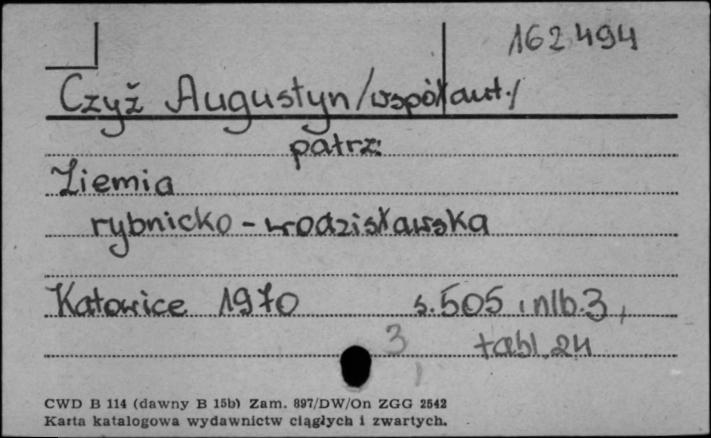 162.494
Czyż Augustyn /współaut./
patrz:
Ziemia
rybnicko-wodzisławska
Katowice 1970 s.505, nlb.3,
3 tabl. 24
CWD B 114 (dawny B 15b) Zam. 897/DW/On ZGG 2542
Karta katalogowa wydawnictw ciągłych i zwartych.